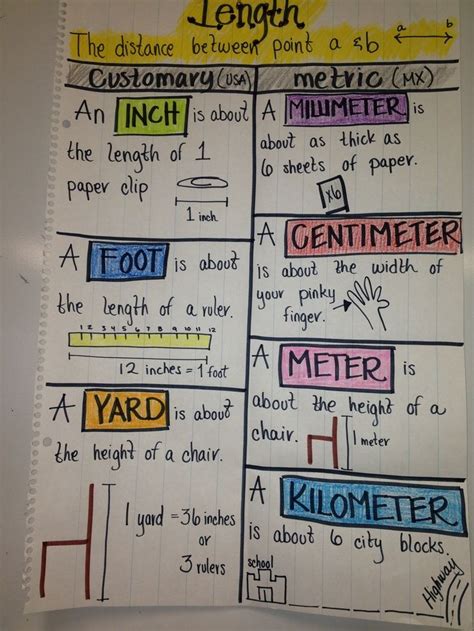 Length
The distance between point a &b
a b
Customary (USA)
An INCH is about
the length of 1
paper clip
1 inch
A FOOT is about
the length of a ruler.
1 2 3 4 5 6 7 8 9 10 11 12
12 inches = 1 foot
A YARD is about
the height of a chair.
1 yard = 36 inches
or
3 rulers
metric (MX)
A MILLIMETER is
about as thick as
6 sheets of paper.
x6
A CENTIMETER
is about the width of
your pinky
finger.
A METER is
about the height of a
chair.
1 meter
A KILOMETER
is about 6 city blocks.
school
Highway